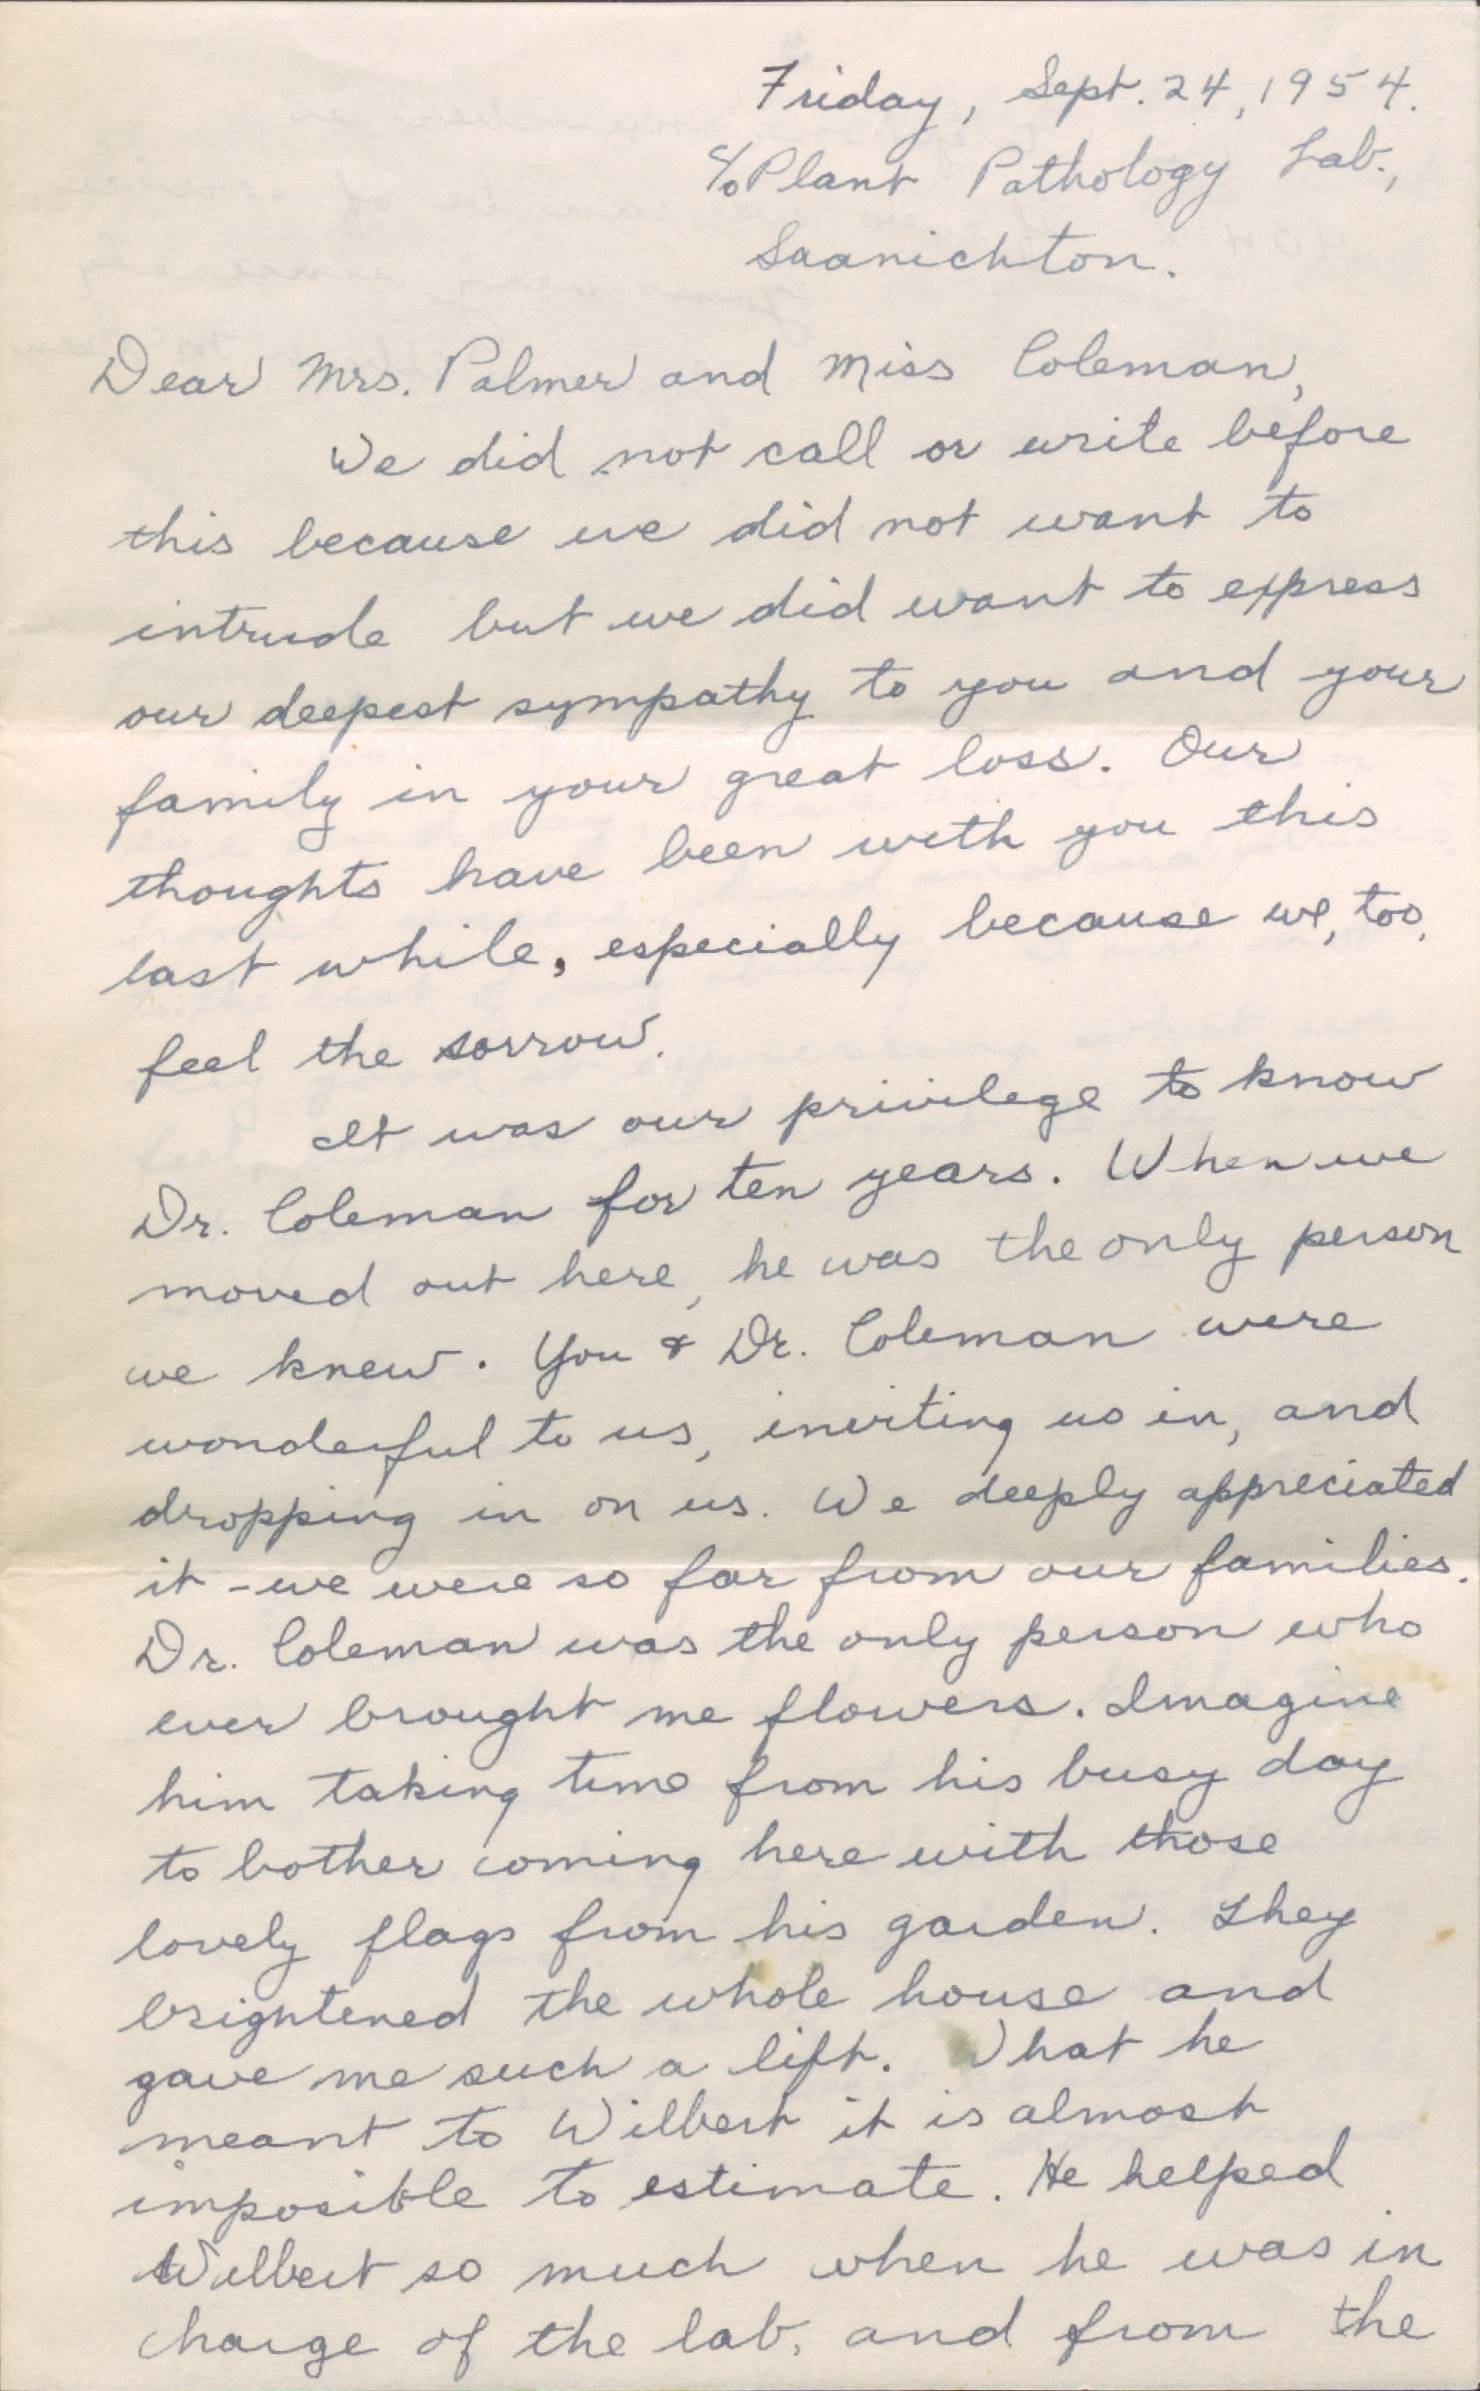 Friday, Sept. 24, 1954.
c/o Plant Pathology Lab.,
Saanichton.
Dear Mrs. Palmer and Miss Coleman,
We did not call or write before
this because we did not want to
intrude but we did want to express
our deepest sympathy to you and your
family in your great loss. Our
thoughts have been with you this
last while, especially because we, too,
feel the sorrow.
It was our privilege to know
Dr. Coleman for ten years. When we
moved out here, he was the only person
we knew. You & Dr. Coleman were
wonderful to us, inviting us in, and
dropping in on us. We deeply appreciated
it - we were so far from our families.
Dr. Coleman was the only person who
ever brought me flowers. Imagine
him taking time from his busy day
to bother coming here with those
lovely flags from his garden. They
brightened the whole house and
gave me such a lift. What he
meant to Wilbert it is almost
imposible to estimate. He helped
Wilbert so much when he was in
charge of the lab, and from the